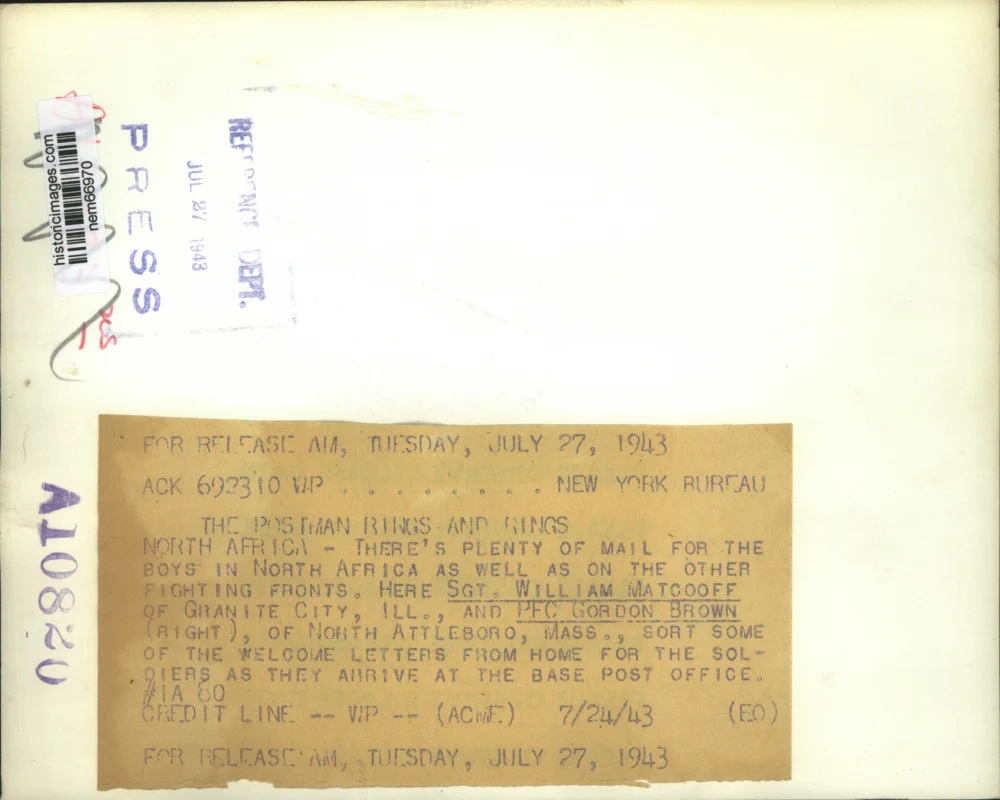 historicimages.com
nem66970
PRESS
JUL 27 1943
REFERENCE DEPT.
A10820
FOR RELEASE AM, TUESDAY, JULY 27, 1943
ACK 692310 WP . . . . . . . . . NEW YORK BUREAU
THE POSTMAN RINGS AND RINGS
NORTH AFRICA - THERE'S PLENTY OF MAIL FOR THE
BOYS IN NORTH AFRICA AS WELL AS ON THE OTHER
FIGHTING FRONTS. HERE SGT. WILLIAM MATCOOFF
OF GRANITE CITY, ILL., AND PFC GORDON BROWN
(RIGHT), OF NORTH ATTLEBORO, MASS., SORT SOME
OF THE WELCOME LETTERS FROM HOME FOR THE SOL-
DIERS AS THEY ARRIVE AT THE BASE POST OFFICE.
#IA 80
CREDIT LINE -- WP -- (ACME) 7/24/43 (EO)
FOR RELEASE AM, TUESDAY, JULY 27, 1943